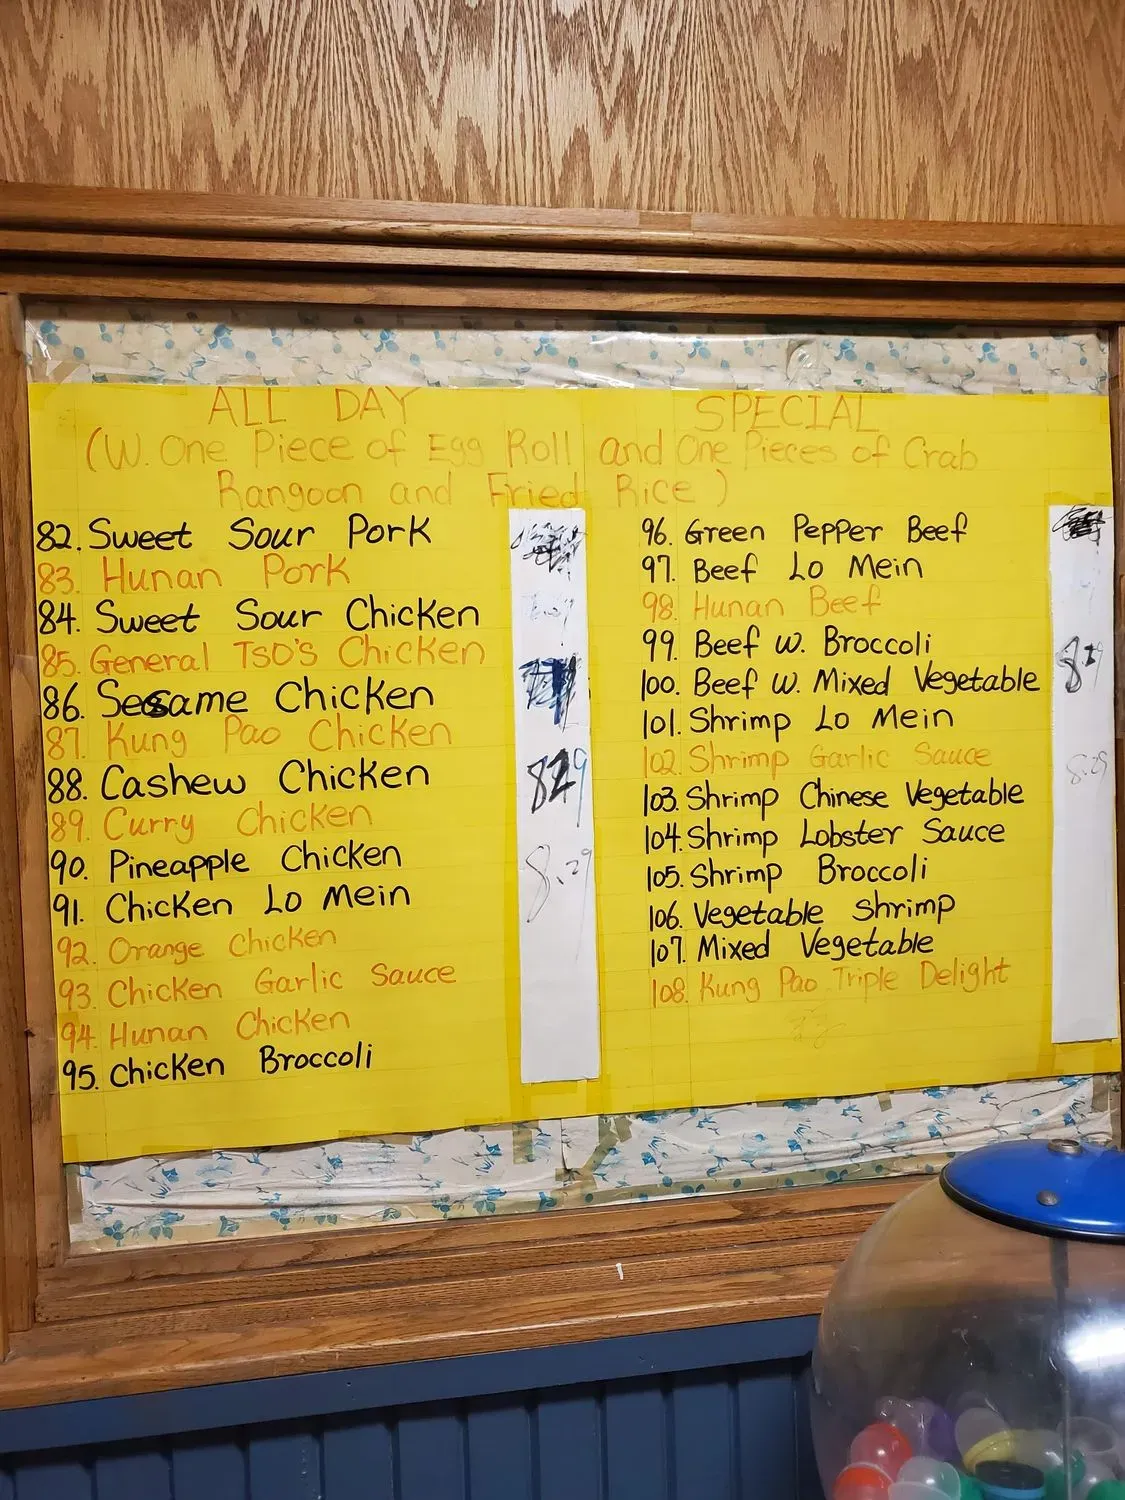 ALL DAY SPECIAL
(W. One Piece of Egg Roll and One Pieces of Crab
Rangoon and Fried Rice)
82. Sweet Sour Pork
83. Hunan Pork
84. Sweet Sour Chicken
85. General TSO'S Chicken
86. Sesame Chicken
87. Kung Pao Chicken
88. Cashew Chicken
89. Curry Chicken
90. Pineapple Chicken
91. Chicken Lo Mein
92. Orange Chicken
93. Chicken Garlic Sauce
94. Hunan Chicken
95. Chicken Broccoli
829
8.29
96. Green Pepper Beef
97. Beef Lo Mein
98. Hunan Beef
99. Beef w. Broccoli
100. Beef w. Mixed Vegetable
101. Shrimp Lo Mein
102. Shrimp Garlic Sauce
103. Shrimp Chinese Vegetable
104. Shrimp Lobster Sauce
105. Shrimp Broccoli
106. Vegetable Shrimp
107. Mixed Vegetable
108. Kung Pao Triple Delight
8.29
8.29